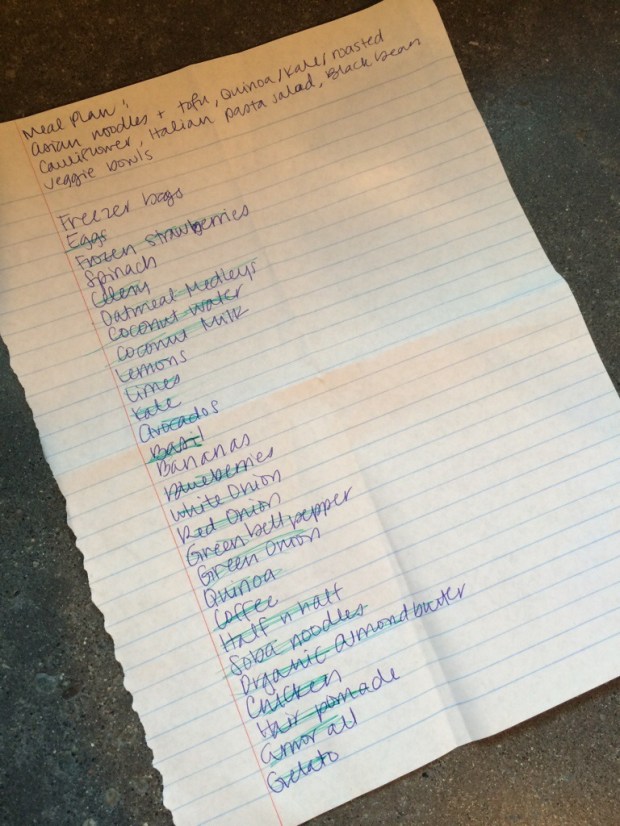 Meal Plan:
Asian noodles + tofu, Quinoa/Kale/roasted
Cauliflower, Italian pasta salad, Black bean
veggie bowls
Freezer bags
Eggs
Frozen strawberries
Spinach
Celery
Oatmeal Medleys
Coconut water
Coconut Milk
Lemons
Limes
Kale
Avocados
Basil
Bananas
Blueberries
White Onion
Red Onion
Green bell pepper
Green Onion
Quinoa
Coffee
Half n half
Soba noodles
Organic almond butter
Chicken
Hair pomade
Armor all
Gelato